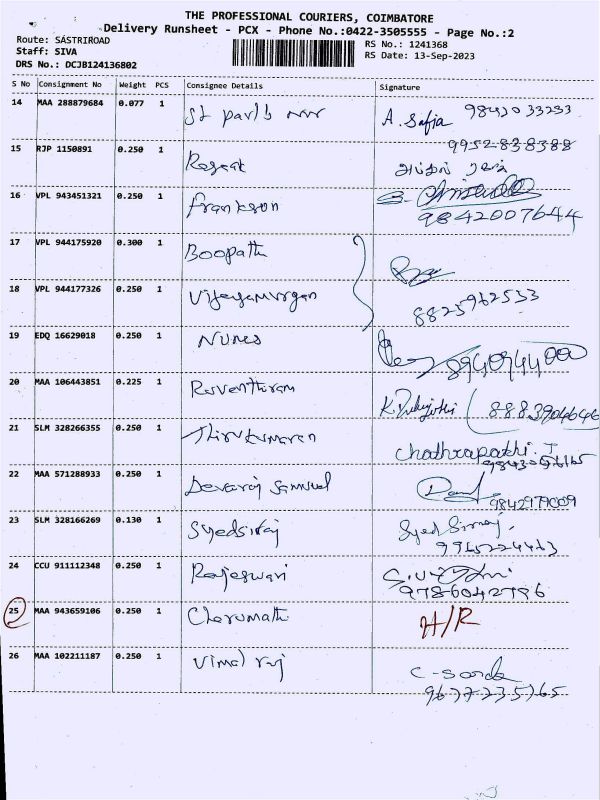 THE PROFESSIONAL COURIERS, COIMBATORE
Delivery Runsheet - PCX - Phone No.:0422-3505555 - Page No.:2
Route: SASTRIROAD
Staff: SIVA
DRS No.: DCJB124136802
RS No.: 1241368
RS Date: 13-Sep-2023
S No Consignment No Weight PCS Consignee Details Signature
14 MAA 288879684 0.077 1 St parls A. Safia 9843033233
15 RJP 1150891 0.250 1 9952838388
16 VPL 943451321 0.250 1 frankson 9842007644
17 VPL 944175920 0.300 1 Boopath
18 VPL 944177326 0.250 1 Vijayamurgan 8825962533
19 EDQ 16629018 0.250 1 Nunes 8940944400
20 MAA 106443851 0.225 1 Raventhiram K 8883904646
21 SLM 328266355 0.250 1 Thirukumaran Chathrapathi. J
22 MAA 571288933 0.250 1 Devaraj Samuel
23 SLM 328166269 0.130 1 Syedsiraj Syed Siraj. 9965224463
24 CCU 911112348 0.250 1 Rajeswari 9786042796
25 MAA 943659106 0.250 1 Charumathi H/R
26 MAA 102211187 0.250 1 Vimal raj 9677235765